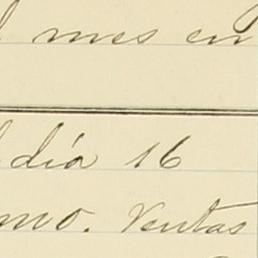 l mes en
l día 16
mo. Ventas